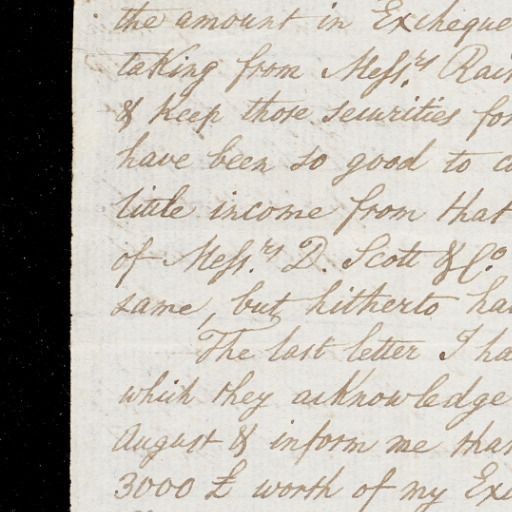 the amount in Excheque
taking from Mess.rs Rai
& keep those securities for
have been so good to c
little income from that
of Mess.rs D. Scott & Co
same, but hitherto ha
The last letter I ha
which they acknowledge
August & inform me tha
3000 £ worth of my Exc